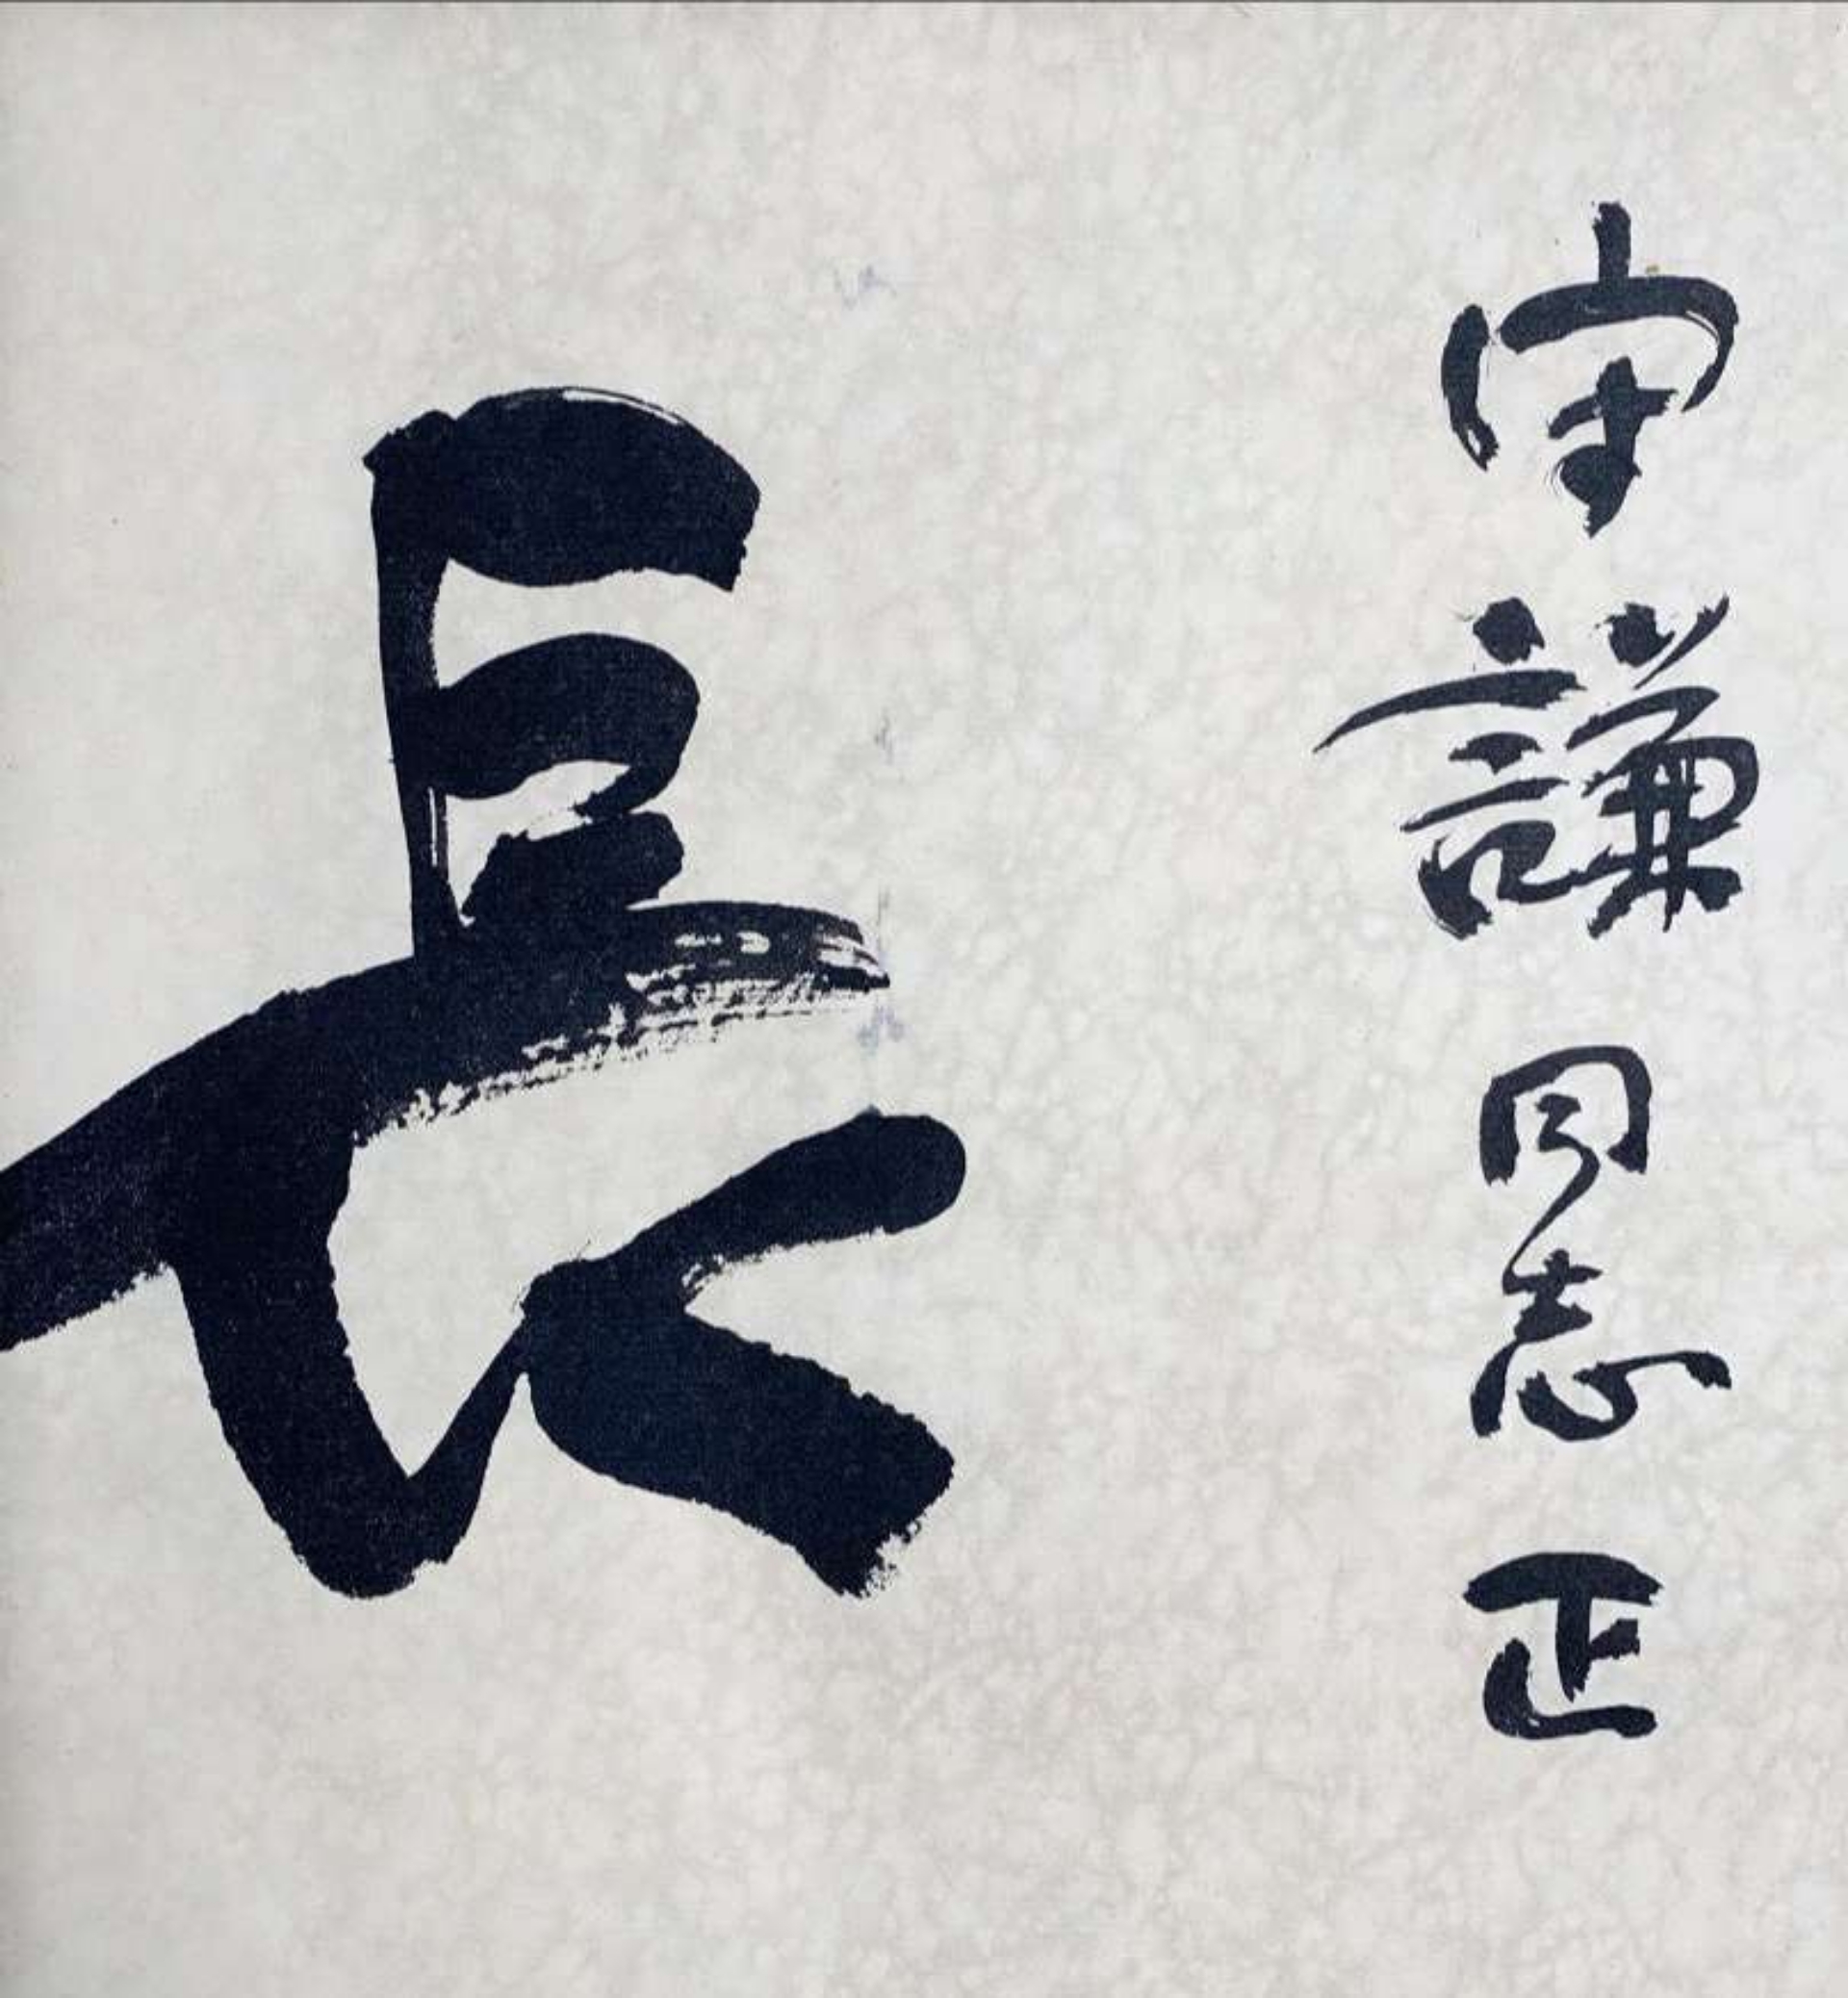 守謙同志正
長